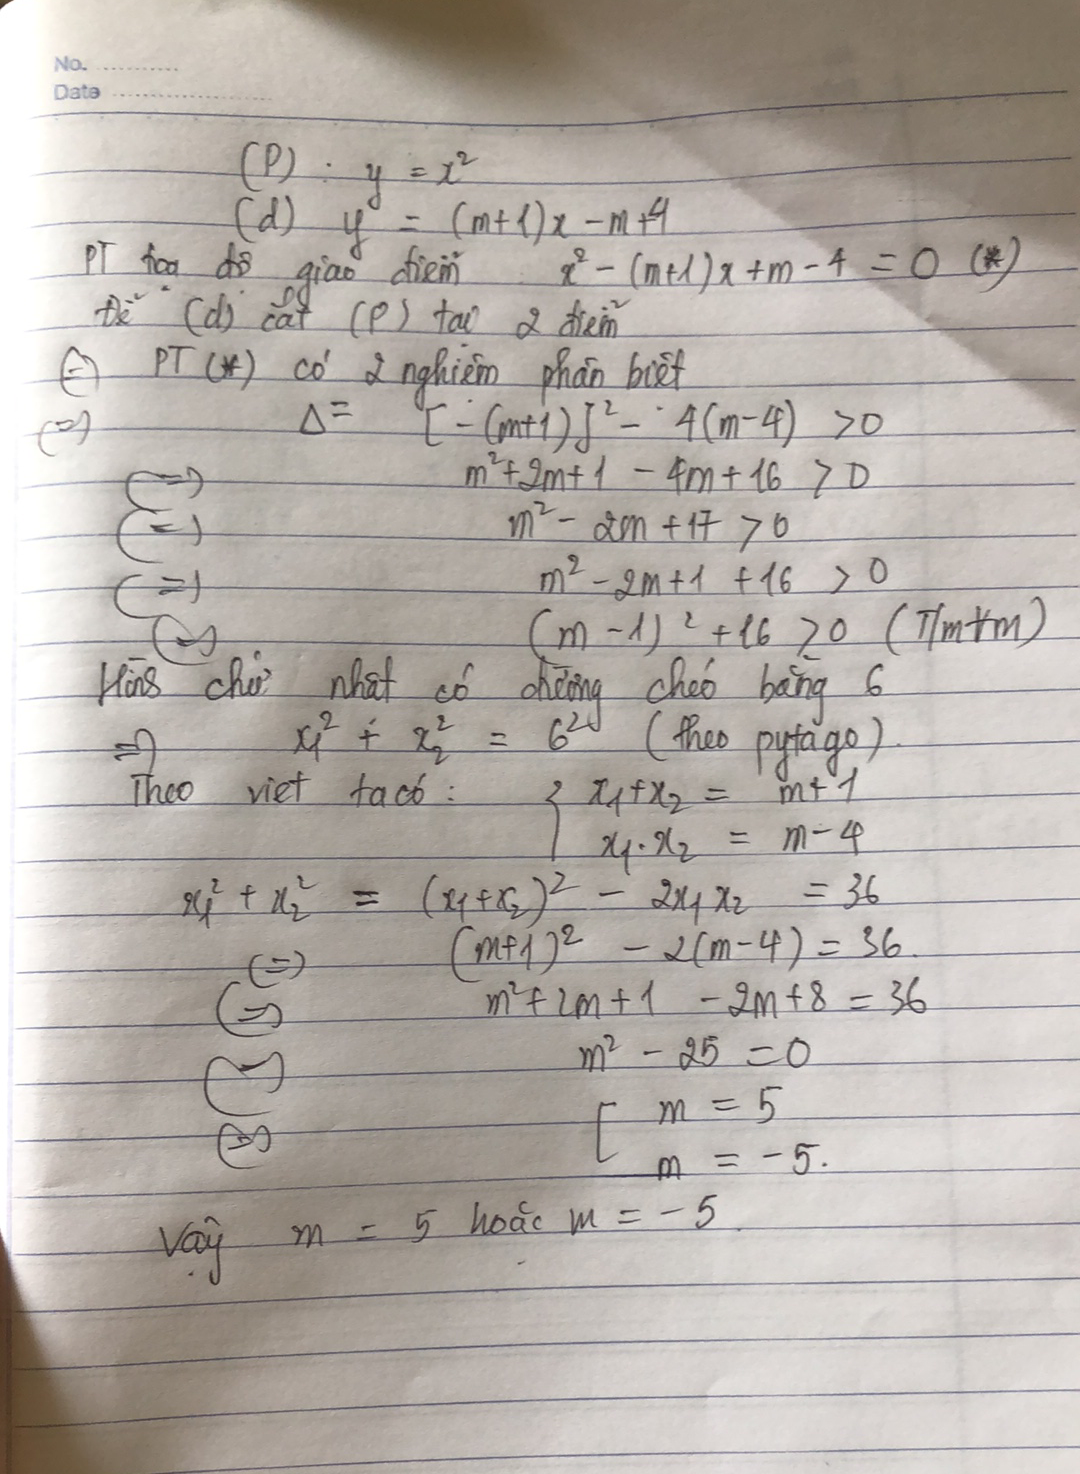 No. ..........
Date ....................
(P) : y = x²
(d) y = (m+1)x - m+4
PT tọa độ giao điểm x² - (m+1)x + m - 4 = 0 (*)
Để (d) cắt (P) tại 2 điểm
(=) PT (*) có 2 nghiệm phân biệt
(=) Δ = [-(m+1)]² - 4(m-4) > 0
(=) m² + 2m + 1 - 4m + 16 > 0
(=) m² - 2m + 17 > 0
(=) m² - 2m + 1 + 16 > 0
(=) (m - 1)² + 16 > 0 (T/m ∀m)
Hình chữ nhật có đường chéo bằng 6
=) x₁² + x₂² = 6² (theo pytago).
Theo viet ta có : { x₁ + x₂ = m + 1
x₁ . x₂ = m - 4
x₁² + x₂² = (x₁ + x₂)² - 2x₁x₂ = 36
(=) (m+1)² - 2(m-4) = 36.
(=) m² + 2m + 1 - 2m + 8 = 36
(=) m² - 25 = 0
(=) [ m = 5
m = -5.
Vậy m = 5 hoặc m = -5.